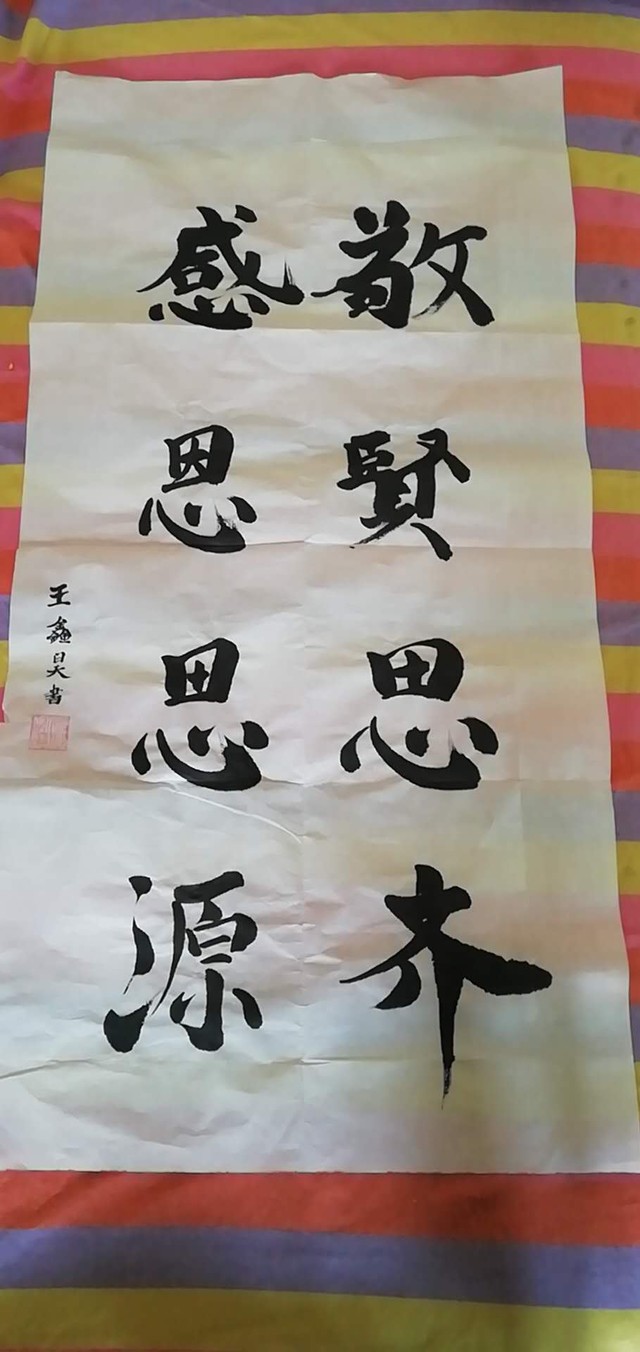 敬賢思齐
感恩思源
王鑫昊書